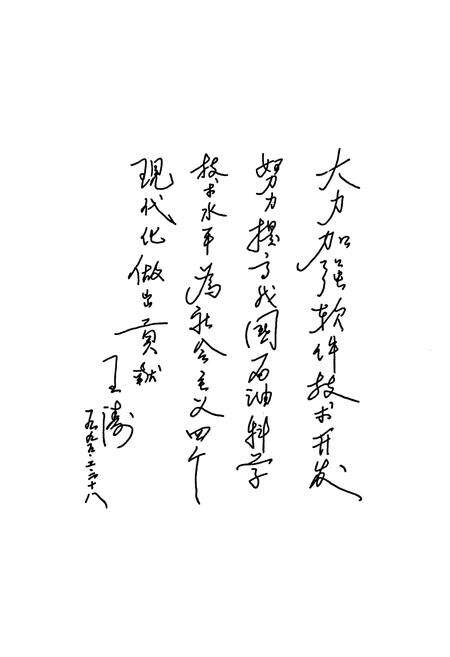 大力加强软件技术开发
努力提高我国石油科学
技术水平為社会主义四个
现代化做出贡献
王涛
一九九〇.二.二十八